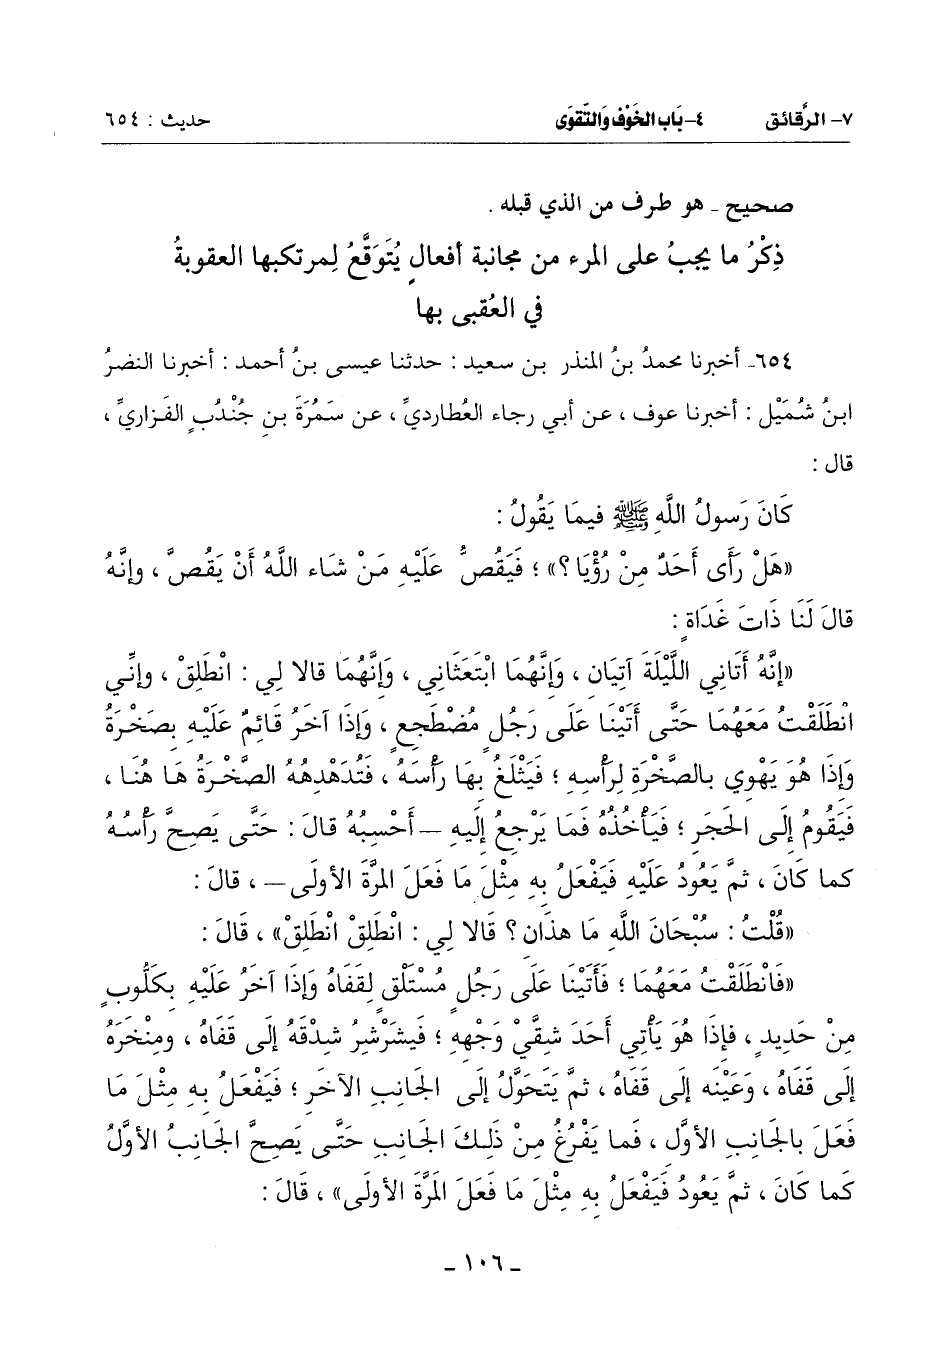 ٧- الرَّقائق ٤- بَاب الخَوْف وَالتَّقوَى حديث : ٦٥٤
صحيح ـ هو طرف من الذي قبله .
ذِكْرُ ما يجبُ على المرء من مجانبة أفعالٍ يُتَوَقَّعُ لِمرتكبها العقوبةُ
في العُقبى بها
٦٥٤ـ أخبرنا محمدُ بنُ المنذر بن سعيد : حدثنا عيسى بنُ أحمد : أخبرنا النضرُ
ابنُ شُمَيْل : أخبرنا عوف ، عن أبي رجاء العُطاردي ، عن سَمُرَةَ بنِ جُنْدُبٍ الفَزاريِّ ،
قال :
كَانَ رَسولُ اللَّهِ ﷺ فيمَا يَقُولُ :
«هَلْ رَأى أَحَدٌ مِنْ رُؤْيَا ؟» ؛ فَيَقُصُّ عَلَيْهِ مَنْ شَاء اللَّهُ أَنْ يَقُصَّ ، وإنَّهُ
قالَ لَنَا ذَاتَ غَدَاةٍ :
«إنَّهُ أَتَانِي اللَّيْلَةَ آتِيَانِ ، وَإنَّهُمَا ابْتَعَثَانِي ، وَإنَّهُمَا قالا لِي : انْطَلِقْ ، وإنِّي
انْطَلَقْتُ مَعَهُمَا حَتَّى أَتَيْنَا عَلَى رَجُلٍ مُضْطَجِعٍ ، وَإذَا آخَرُ قَائِمٌ عَلَيْهِ بِصَخْرَةٍ
وَإذَا هُوَ يَهْوِي بالصَّخْرَةِ لِرَأسِهِ ؛ فَيَثْلَغُ بِهَا رَأسَهُ ، فَتَدَهْدِهُهُ الصَّخْرَةُ هَا هُنَا ،
فَيَقُومُ إلَى الحَجَرِ ؛ فَيَأخُذُهُ فَمَا يَرْجِعُ إلَيهِ –أَحْسِبُهُ قالَ : حَتَّى يَصِحَّ رَأسُهُ
كما كَانَ ، ثمَّ يَعُودُ عَلَيْهِ فَيَفْعَلُ بِهِ مِثْلَ مَا فَعَلَ المرَّةَ الأولَى– ، قالَ :
«قُلْتُ : سُبْحَانَ اللَّهِ مَا هذَانِ ؟ قَالا لِي : انْطَلِقْ انْطَلِقْ» ، قَالَ :
«فَانْطَلَقْتُ مَعَهُمَا ؛ فَأَتَيْنَا عَلَى رَجُلٍ مُسْتَلْقٍ لِقَفَاهُ وَإذَا آخَرُ عَلَيْهِ بِكَلُّوبٍ
مِنْ حَدِيدٍ ، فإذَا هُوَ يَأتِي أَحَدَ شِقَّيْ وَجْهِهِ ؛ فَيشَرْشِرُ شِدْقَهُ إلَى قَفَاهُ ، ومِنْخَرَهُ
إلَى قَفَاهُ ، وَعَيْنَه إلَى قفَاهُ ، ثمَّ يَتَحَوَّلُ إلَى الجَانِبِ الآخَرِ ؛ فَيَفْعَلُ بِهِ مِثْلَ مَا
فَعَلَ بالجَانِبِ الأوَّلِ ، فَما يَفْرُغُ مِنْ ذَلِكَ الجَانِبِ حَتَّى يَصِحَّ الجَانِبُ الأوَّلُ
كَما كَانَ ، ثمَّ يَعُودُ فَيَفْعَلُ بِهِ مِثْلَ مَا فَعَلَ المَرَّةَ الأولَى» ، قَالَ :
ـ ١٠٦ ـ